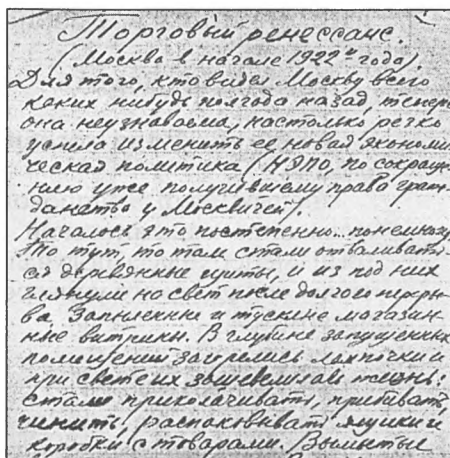 Торговый ренессанс.
(Москва в начале 1922го года).
Для того, кто видел Москву всего
каких нибудь полгода назад, теперь
она неузнаваема, настолько резко
успела изменить ее новая экономи
ческая политика (НЭПО, по сокраще-
нию уже получившему права граж-
данства у Москвичей).
Началось это постепенно.. понемногу.
То тут, то там стали отваливать-
ся деревянные щиты, и из под них
глянули на свет после долгого переры-
ва запыленные и тусклые магазин-
ные витрины. В глубине запущенных
помещений загорелись лампочки и
при свете их зашевелилась жизнь:
стали приколачивать, прибивать,
чинить, распаковывать ящики и
коробки с товарами. Вымытые